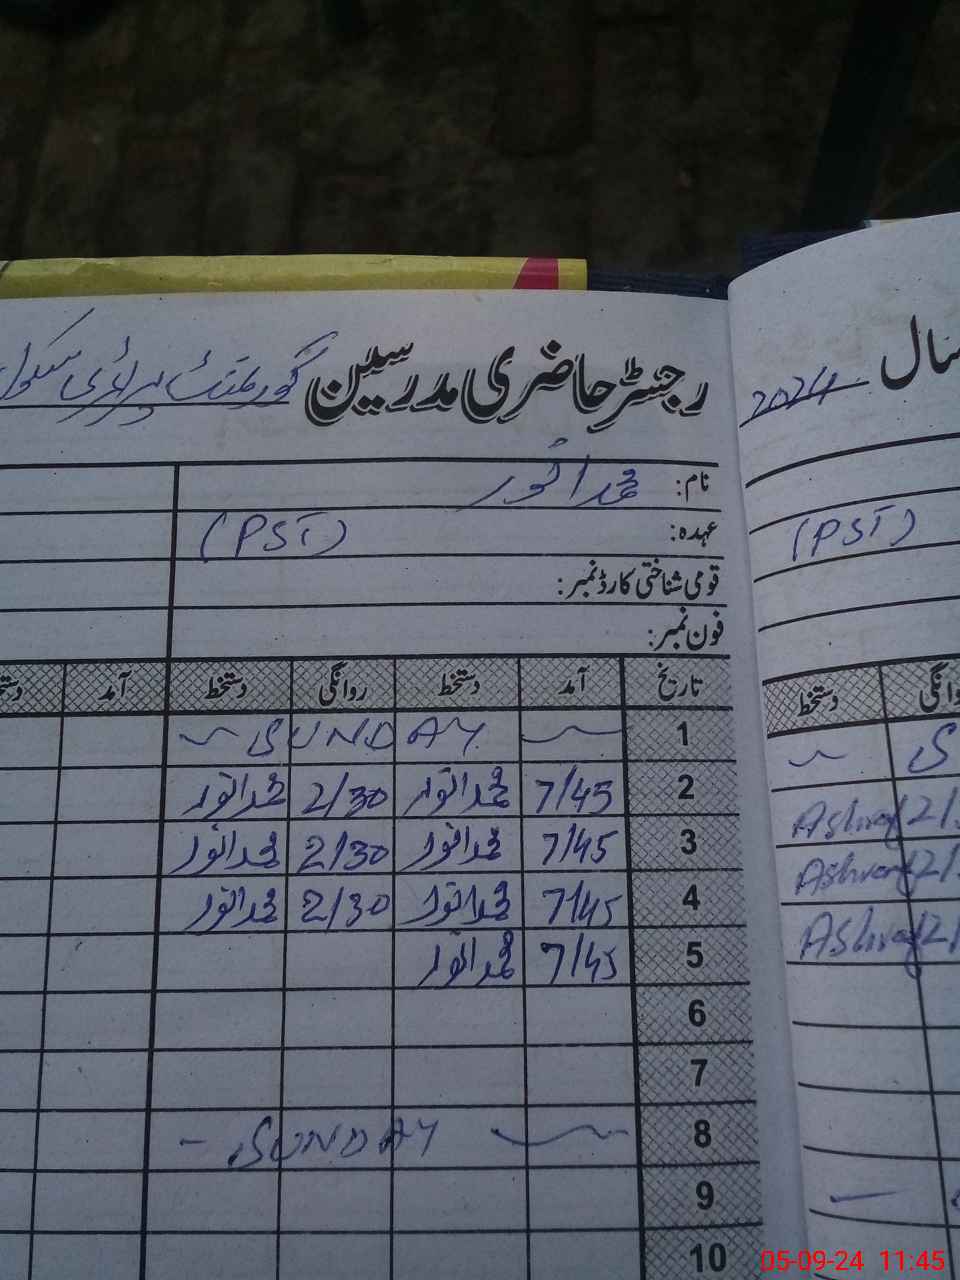 رجسٹر حاضری مدرسین گورنمنٹ پرائمری سکول
نام: محمد انور
عہدہ: (PST)
قومی شناختی کارڈ نمبر:
فون نمبر:
تاریخ آمد دستخط روانگی دستخط آمد
1 SUNDAY
2 7/45 محمد انور 2/30 محمد انور
3 7/45 محمد انور 2/30 محمد انور
4 7/45 محمد انور 2/30 محمد انور
5 7/45 محمد انور
6
7
8 SUNDAY
9
10
سال 2024
(PST)
دستخط
Ashraf 2/
Ashraf 2/
Ashraf 2/
05-09-24 11:45